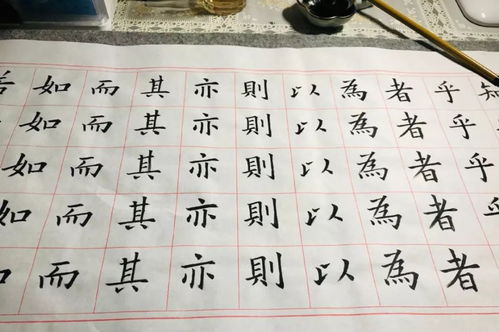 知
乎乎乎
者者者者者
為為為為為
以以以以以
則則則則則
亦亦亦亦亦
其其其其其
而而而而而
如如如如